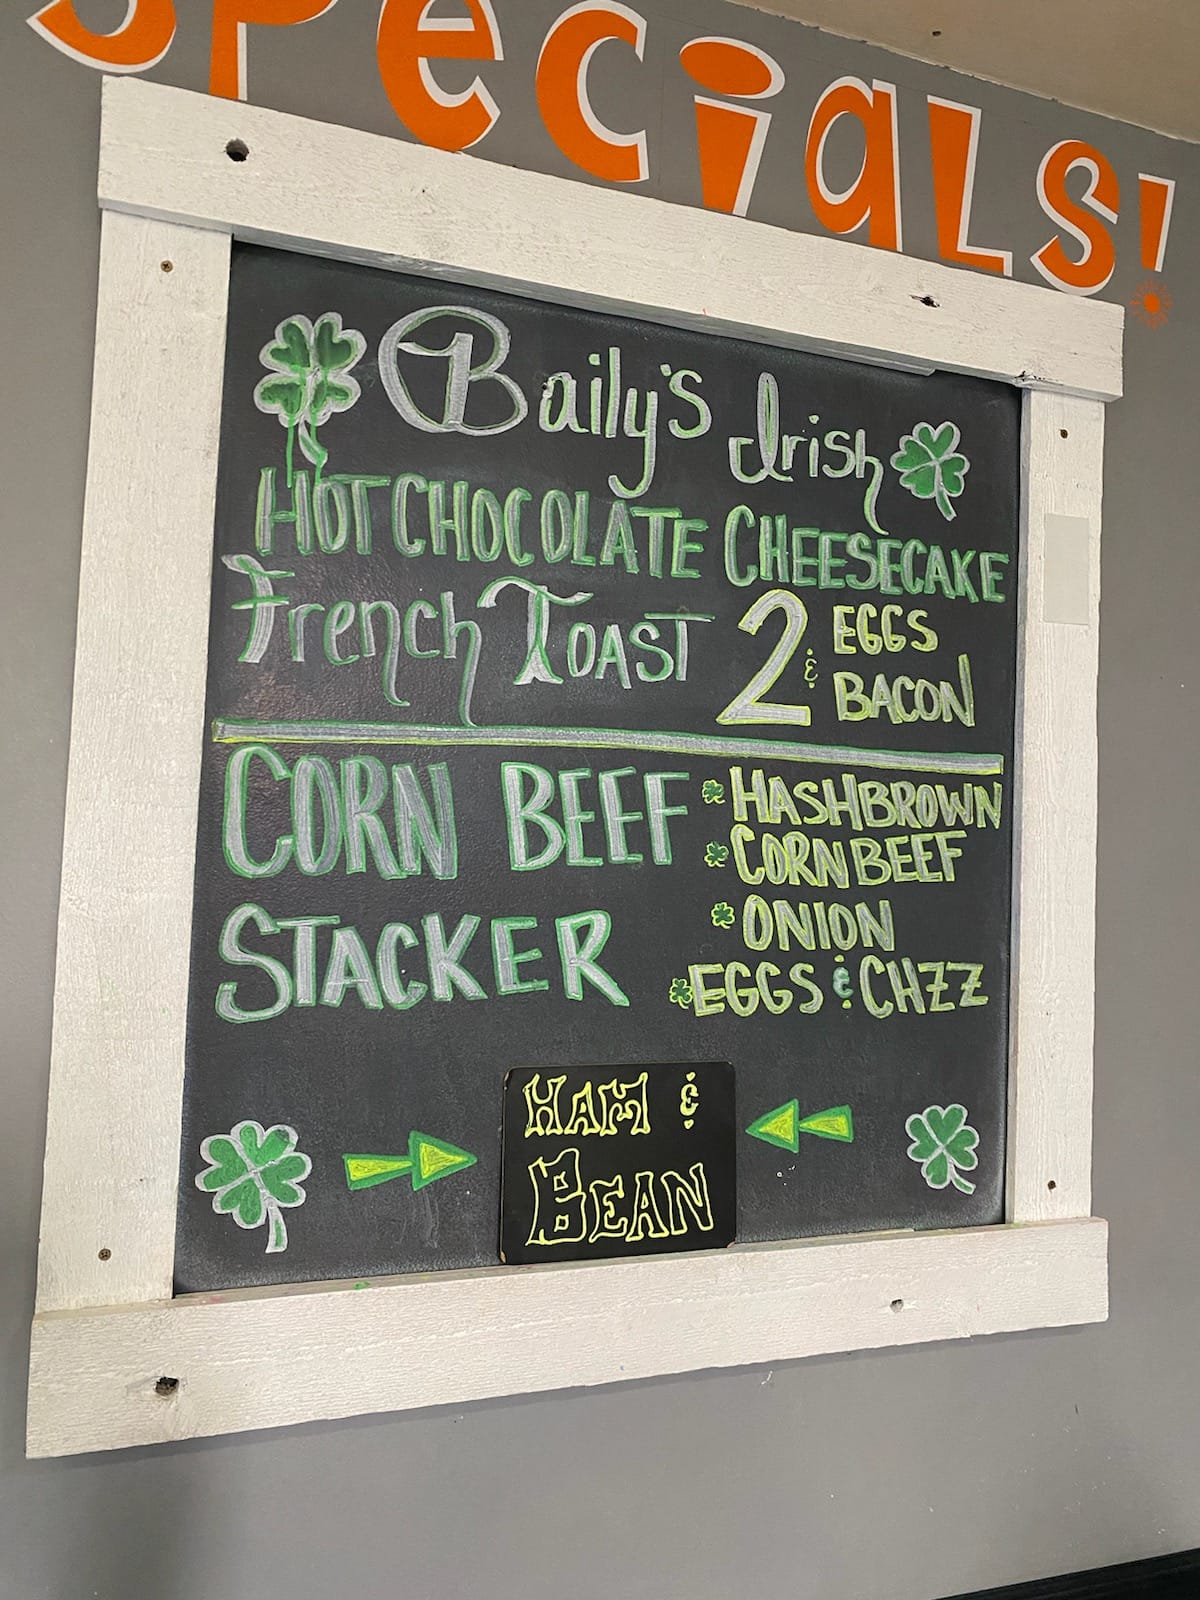 SPecials!
Baily's Irish
HOT CHOCOLATE CHEESECAKE
French TOAST 2 EGGS
& BACON
CORN BEEF
STACKER
HASHBROWN
CORN BEEF
ONION
EGGS & CHZZ
HAM &
BEAN